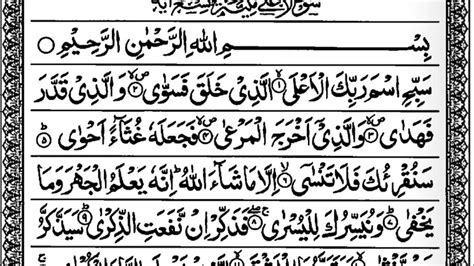 بِسْمِ اللهِ الرَّحْمٰنِ الرَّحِيْمِ ○
سَبِّحِ اسْمَ رَبِّكَ الْاَعْلَى ۙ﴿۱﴾ الَّذِىْ خَلَقَ فَسَوّٰى ۪ۙ﴿۲﴾ وَالَّذِىْ قَدَّرَ
فَهَدٰى ۪ۙ﴿۳﴾ وَالَّذِىْۤ اَخْرَجَ الْمَرْعٰى ۪ۙ﴿۴﴾ فَجَعَلَهٗ غُثَآءً اَحْوٰى ؕ﴿۵﴾
سَنُقْرِئُكَ فَلَا تَنْسٰٓى ۙ﴿۶﴾ اِلَّا مَا شَآءَ اللهُ ؕ اِنَّهٗ يَعْلَمُ الْجَهْرَ وَمَا
يَخْفٰى ؕ﴿۷﴾ وَنُيَسِّرُكَ لِلْيُسْرٰى ۚۖ﴿۸﴾ فَذَكِّرْ اِنْ نَّفَعَتِ الذِّكْرٰى ؕ﴿۹﴾ سَيَذَّكَّرُ